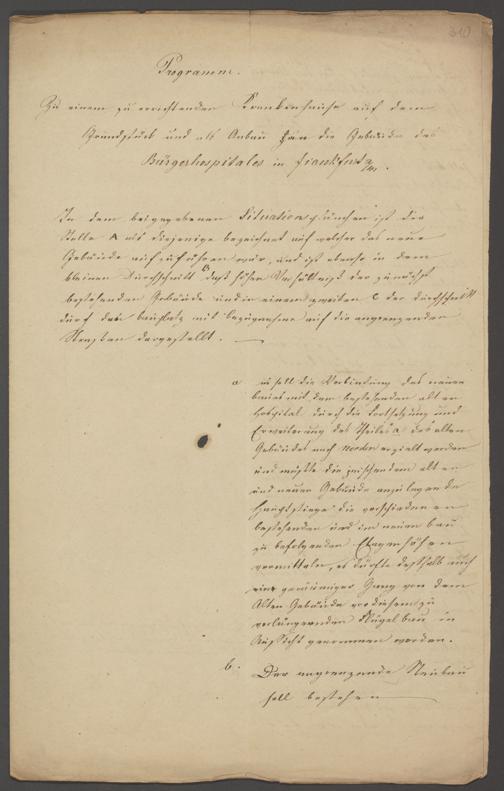 310
Programm.
Zu einem zu errichtenden Krankenhause auf dem
Grundstück und als Anbau an die Gebäude des
Bürgerhospitales in Frankfurt a/M.
In dem beigegebenen Situationsplänchen ist die
Stelle A als diejenige bezeichnet auf welcher das neue
Gebäude aufzuführen wär, und ist ebenso in dem
kleinen Durchschnitt B das Höhen Verhältniß der zunächst
bestehenden Gebäude und in einem zweiten C der Durchschnitt
durch den Bauplatz mit bezugnahme auf die angrenzenden
Straßen dargestellt. —
a es soll die Verbindung des neuen
baues mit dem bestehenden alten
Hospital durch die Fortsetzung und
Erweiterung des Theiles a des alten
Gebäudes nach Norden erzielt werden
und müßte die zwischen dem alten
und neuen Gebäude anzulegende
Hauptstiege die verschiedenen
bestehenden und im neuen bau
zu befolgenden Etagenhöhen
vermitteln, es dürfte deßhalb auch
ein geräumiger Gang von dem
Alten Gebäude nach diesem zu
verlängernden Flügelbau in
Aussicht genommen werden.
b. Der angrenzende Neubau
soll bestehen